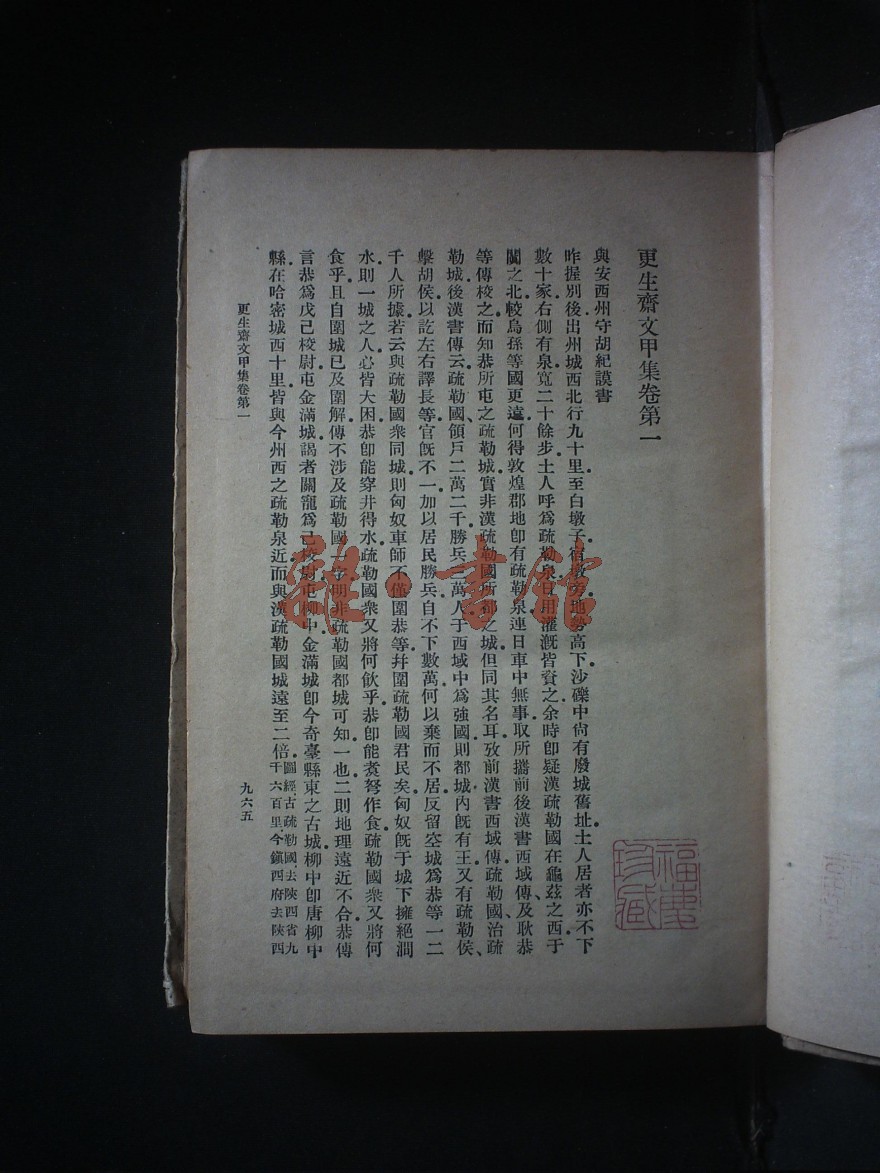 更生齋文甲集卷第一
與安西州守胡紀謨書
昨握別後出州城西北行九十里至白墩子宿墩旁地勢高下沙礫中尙有廢城舊址土人居者亦不下
數十家右側有泉寬二十餘步土人呼爲疏勒泉日用灌漑皆資之余時卽疑漢疏勒國在龜茲之西于
闐之北較烏孫等國更遠何得敦煌郡地卽有疏勒泉連日車中無事取所攜前後漢書西域傳、及耿恭
等傳校之而知恭所屯之疏勒城實非漢疏勒國所都之城但同其名耳攷前漢書西域傳疏勒國、治疏
勒城後漢書傳云疏勒國、領戶二萬二千勝兵三萬人于西域中爲強國則都城內旣有王又有疏勒侯、
擊胡侯以訖左右譯長等官旣不一加以居民勝兵自不下數萬何以棄而不居反留空城爲恭等一二
千人所據若云與疏勒國衆同城則匈奴車師不僅圍恭等幷圍疏勒國君民矣匈奴旣于城下擁絕澗
水則一城之人必皆大困恭卽能穿井得水疏勒國衆又將何飲乎恭卽能煑弩作食疏勒國衆又將何
食乎且自圍城已及圍解傳不涉及疏勒國一字明非疏勒國都城可知一也二則地理遠近不合恭傳
言恭爲戊己校尉屯金滿城謁者關寵爲己校尉屯柳中金滿城卽今奇臺縣東之古城柳中卽唐柳中
縣在哈密城西十里皆與今州西之疏勒泉近而與漢疏勒國城遠至二倍圖經、古疏勒國、去陝西省九
千六百里、今鎭西府去陝西
更生齋文甲集卷第一
九六五
雜·書館
福慶
珍藏